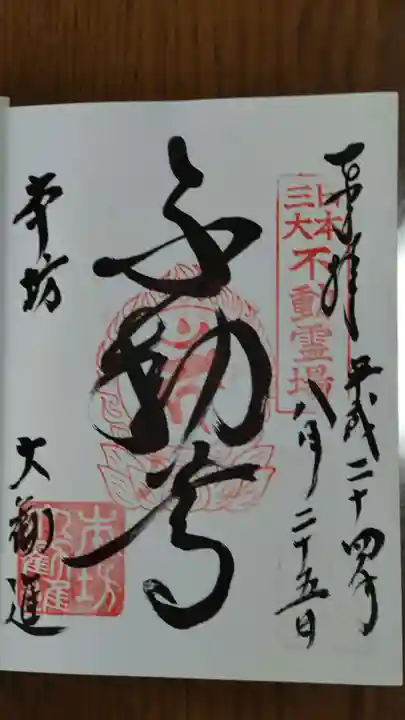 奉拝
平成二十四年
八月二十五日
日本
三大
不動霊場
不動尊
本坊 大勧進